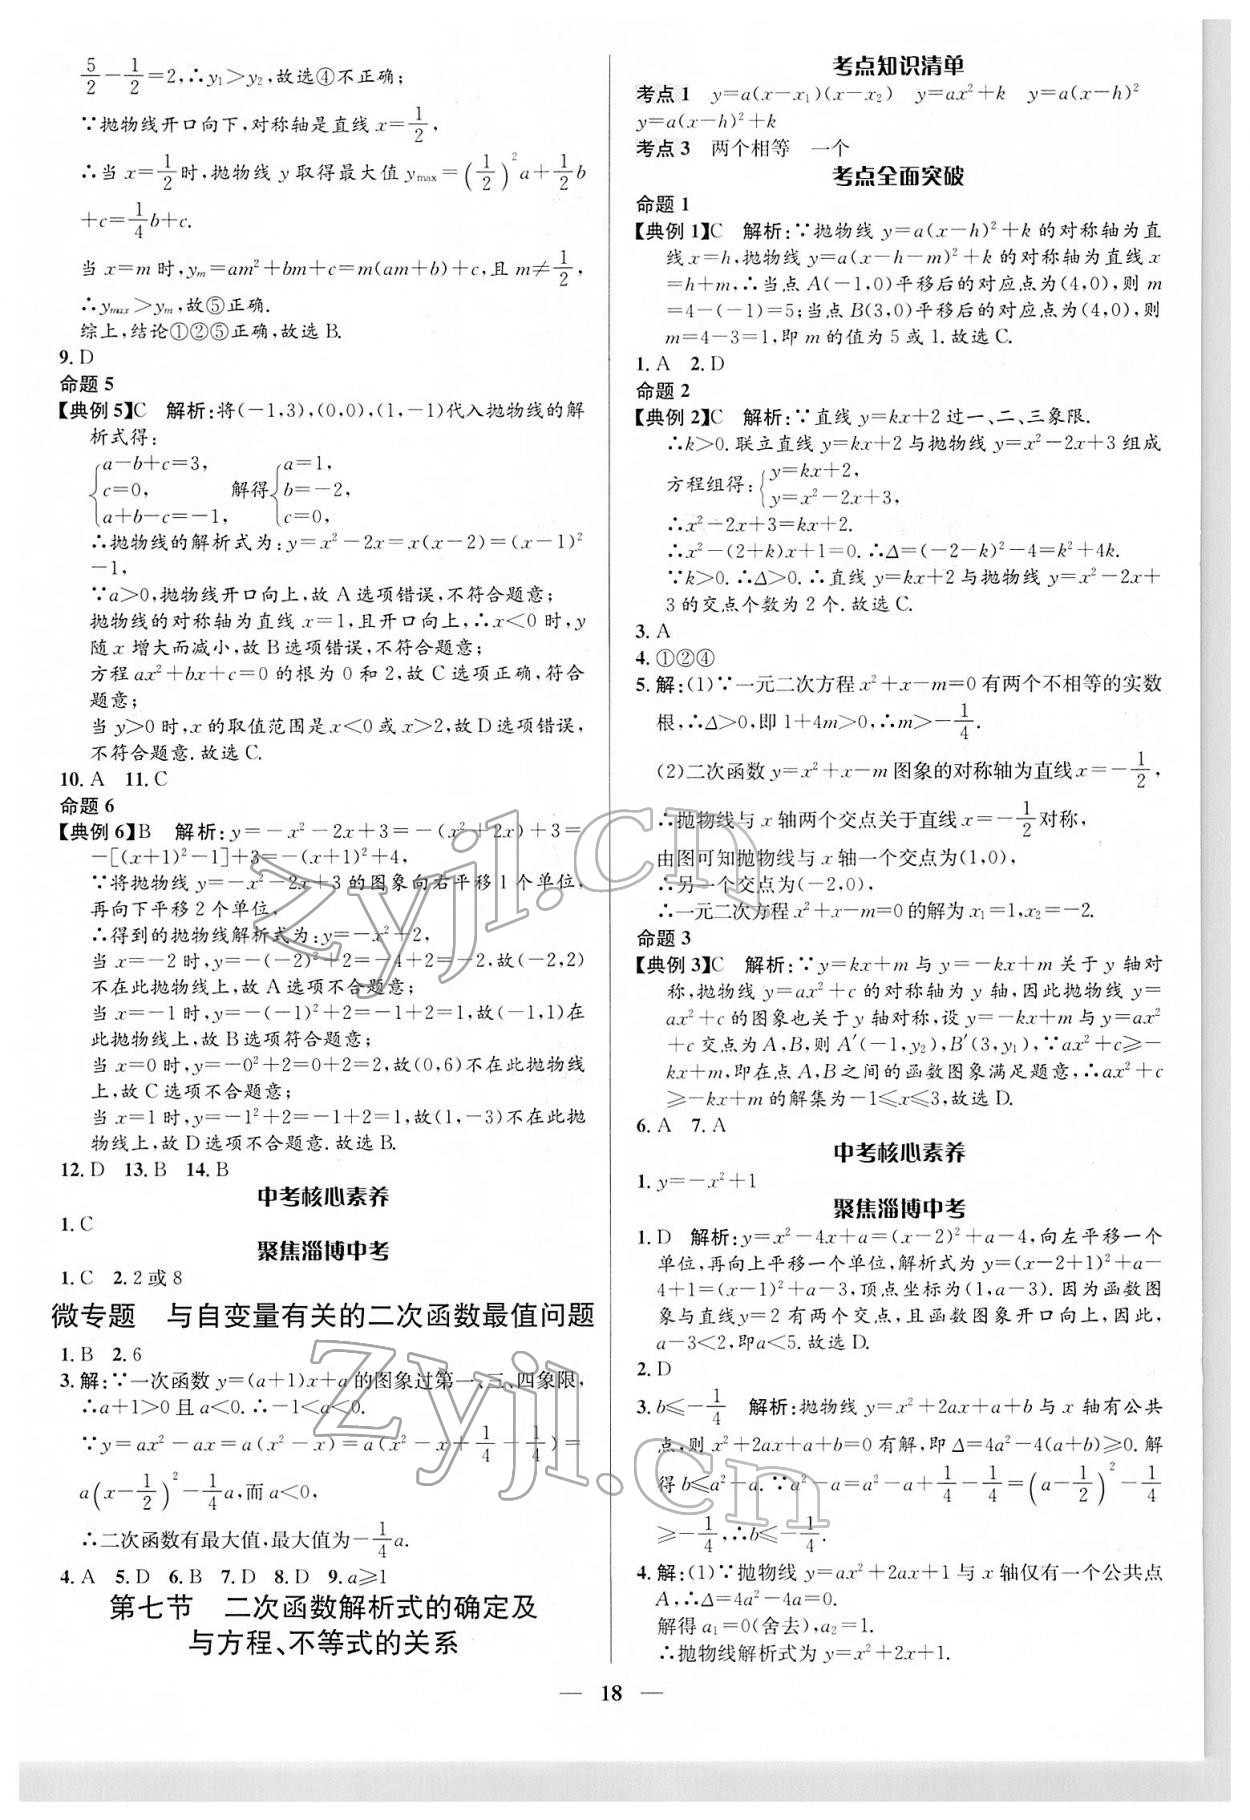 5/2-1/2=2,∴y₁>y₂,故选④不正确;
∵抛物线开口向下,对称轴是直线x=1/2,
∴当x=1/2时,抛物线y取得最大值y_max=(1/2)²a+1/2b
+c=1/4b+c.
当x=m时,y_m=am²+bm+c=m(am+b)+c,且m≠1/2,
∴y_max>y_m,故⑤正确.
综上,结论①②⑤正确,故选B.
9.D
命题5
【典例5】C 解析:将(-1,3),(0,0),(1,-1)代入抛物线的解
析式得:
{a-b+c=3, c=0, a+b-c=-1, 解得{a=1, b=-2, c=0,
∴抛物线的解析式为:y=x²-2x=x(x-2)=(x-1)²
-1,
∵a>0,抛物线开口向上,故A选项错误,不符合题意;
抛物线的对称轴为直线x=1,且开口向上,∴x<0时,y
随x增大而减小,故B选项错误,不符合题意;
方程ax²+bx+c=0的根为0和2,故C选项正确,符合
题意;
当y>0时,x的取值范围是x<0或x>2,故D选项错误,
不符合题意.故选C.
10.A 11.C
命题6
【典例6】B 解析:y=-x²-2x+3=-(x²+2x)+3=
-[(x+1)²-1]+3=-(x+1)²+4,
∵将抛物线y=-x²-2x+3的图象向右平移1个单位,
再向下平移2个单位,
∴得到的抛物线解析式为:y=-x²+2,
当x=-2时,y=-(-2)²+2=-4+2=-2,故(-2,2)
不在此抛物线上,故A选项不合题意;
当x=-1时,y=-(-1)²+2=-1+2=1,故(-1,1)在
此抛物线上,故B选项符合题意;
当x=0时,y=-0²+2=0+2=2,故(0,6)不在此抛物线
上,故C选项不合题意;
当x=1时,y=-1²+2=-1+2=1,故(1,-3)不在此抛
物线上,故D选项不合题意.故选B.
12.D 13.B 14.B
中考核心素养
1.C
聚焦淄博中考
1.C 2.2或8
微专题 与自变量有关的二次函数最值问题
1.B 2.6
3.解:∵一次函数y=(a+1)x+a的图象过第一、三、四象限,
∴a+1>0且a<0.∴-1<a<0.
∵y=ax²-ax=a(x²-x)=a(x²-x+1/4-1/4)=
a(x-1/2)²-1/4a,而a<0,
∴二次函数有最大值,最大值为-1/4a.
4.A 5.D 6.B 7.D 8.D 9.a⩾1
第七节 二次函数解析式的确定及
与方程、不等式的关系
考点知识清单
考点1 y=a(x-x₁)(x-x₂) y=ax²+k y=a(x-h)²
y=a(x-h)²+k
考点3 两个相等 一个
考点全面突破
命题1
【典例1】C 解析:∵抛物线y=a(x-h)²+k的对称轴为直
线x=h,抛物线y=a(x-h-m)²+k的对称轴为直线x
=h+m,∴当点A(-1,0)平移后的对应点为(4,0),则m
=4-(-1)=5;当点B(3,0)平移后的对应点为(4,0),则
m=4-3=1,即m的值为5或1.故选C.
1.A 2.D
命题2
【典例2】C 解析:∵直线y=kx+2过一、二、三象限.
∴k>0.联立直线y=kx+2与抛物线y=x²-2x+3组成
方程组得:{y=kx+2, y=x²-2x+3,
∴x²-2x+3=kx+2.
∴x²-(2+k)x+1=0.∴Δ=(-2-k)²-4=k²+4k.
∵k>0.∴Δ>0.∴直线y=kx+2与抛物线y=x²-2x+
3的交点个数为2个.故选C.
3.A
4.①②④
5.解:(1)∵一元二次方程x²+x-m=0有两个不相等的实数
根,∴Δ>0,即1+4m>0,∴m>-1/4.
(2)二次函数y=x²+x-m图象的对称轴为直线x=-1/2,
∴抛物线与x轴两个交点关于直线x=-1/2对称,
由图可知抛物线与x轴一个交点为(1,0),
∴另一个交点为(-2,0),
∴一元二次方程x²+x-m=0的解为x₁=1,x₂=-2.
命题3
【典例3】C 解析:∵y=kx+m与y=-kx+m关于y轴对
称,抛物线y=ax²+c的对称轴为y轴,因此抛物线y=
ax²+c的图象也关于y轴对称,设y=-kx+m与y=ax²
+c交点为A,B,则A′(-1,y₂),B′(3,y₁),∵ax²+c⩾-
kx+m,即在点A,B之间的函数图象满足题意,∴ax²+c
⩾-kx+m的解集为-1⩽x⩽3,故选C.
6.A 7.A
中考核心素养
1.y=-x²+1
聚焦淄博中考
1.D 解析:y=x²-4x+a=(x-2)²+a-4,向左平移一个
单位,再向上平移一个单位,解析式为y=(x-2+1)²+a-
4+1=(x-1)²+a-3,顶点坐标为(1,a-3).因为函数图
象与直线y=2有两个交点,且函数图象开口向上,因此,
a-3<2,即a<5.故选D.
2.D
3.b⩽-1/4 解析:抛物线y=x²+2ax+a+b与x轴有公共
点,则x²+2ax+a+b=0有解,即Δ=4a²-4(a+b)⩾0.解
得b⩽a²-a.∵a²-a=a²-a+1/4-1/4=(a-1/2)²-1/4
⩾-1/4,∴b⩽-1/4.
4.解:(1)∵抛物线y=x²+2ax+a与x轴仅有一个公共点
A,∴Δ=4a²-4a=0.
解得a₁=0(舍去),a₂=1.
∴抛物线解析式为y=x²+2x+1.
— 18 —
zyjl.cn
zyjl.cn